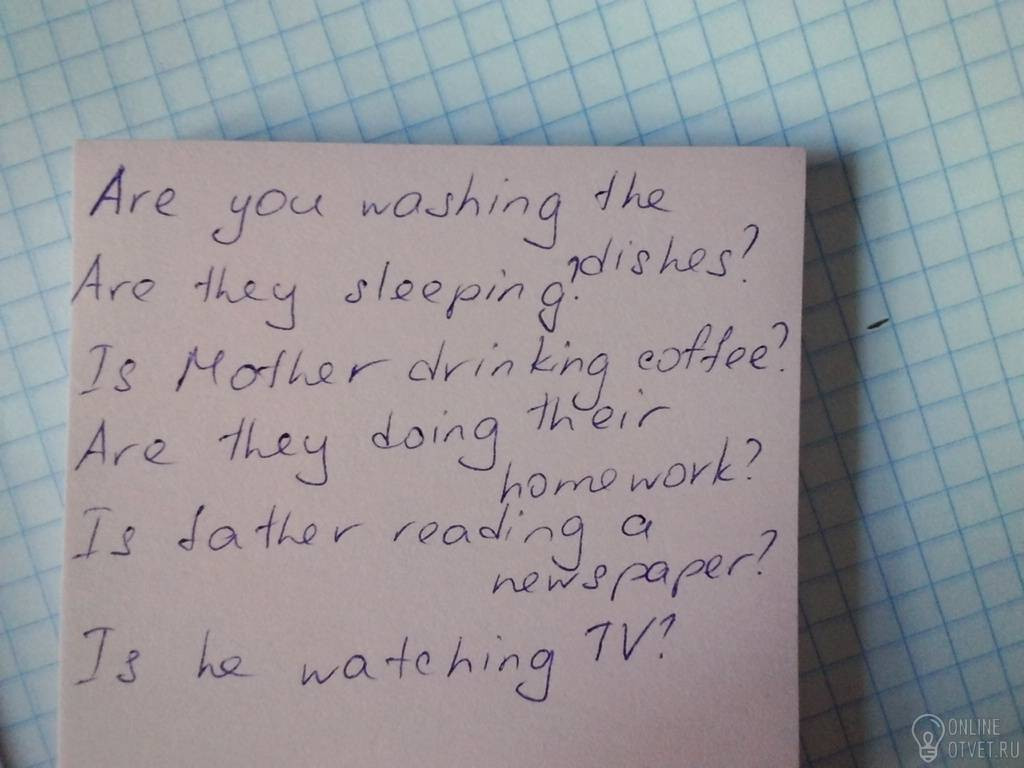 Are you washing the
dishes?
Are they sleeping?
Is Mother drinking coffee?
Are they doing their
homework?
Is father reading a
newspaper?
Is he watching TV?
ONLINE
OTVET.RU